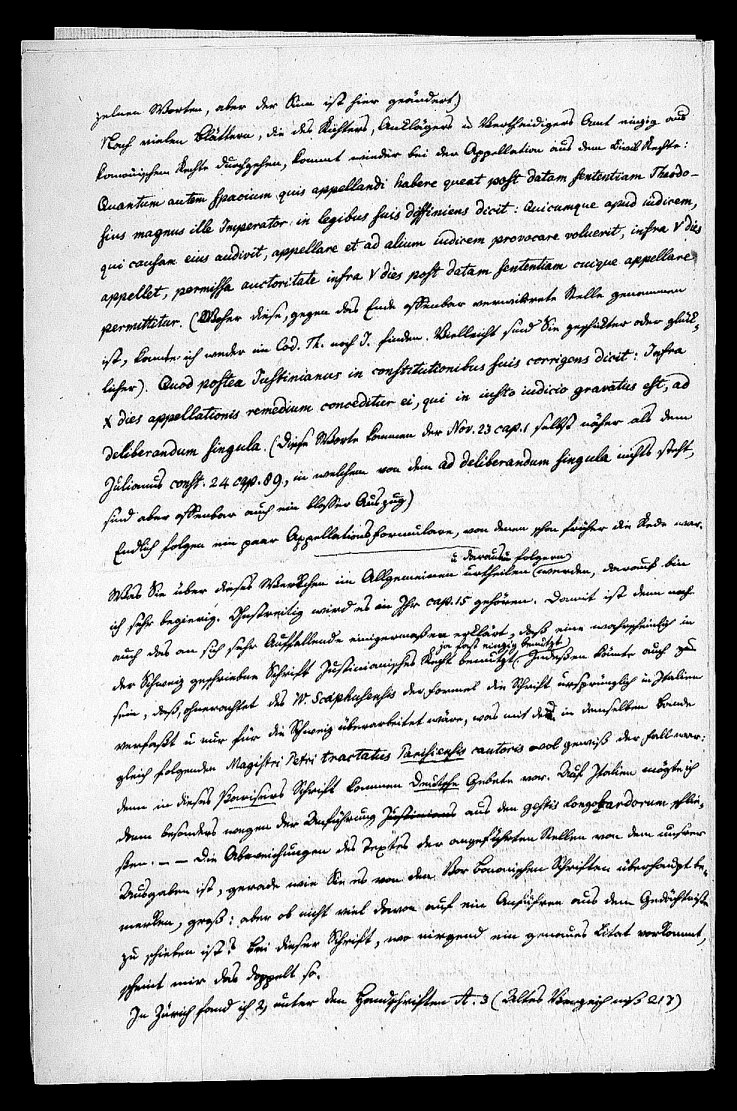 zelnen Worten, aber der Sinn ist hier geändert)
Nach vielen Blättern, die des Richters, Anklägers u Vertheidigers Amt einzig aus
kanonischen Rechte durchgehen, kommt wieder bei der Appellation aus dem Civil Rechte:
Quantum autem spacium quis appellandi habere queat post datam sententiam Theodo-
sius magnus ille Imperator in legibus suis diffiniens dicit: Quicumque apud iudicem,
qui causam eius audivit, appellare et ad alium iudicem provocare voluerit, infra V dies
appellet, permissa auctoritate infra V dies post datam sententiam cuique appellare
permittitur. (Woher diese, gegen das Ende offenbar verwirrte Stelle genommen
ist, konnte ich weder im Cod. Th. noch J. finden. Vielleicht sind Sie geschikter oder glük-
licher). Quod postea Justinianus in constitutionibus suis corrigens dicit: Infra
X dies appellationis remedium conceditur ei, qui in iusto iudicio gravatus est, ad
deliberandum singula. (Diese Worte kommen der Nov. 23 cap. 1 selbst näher als dem
Julianus const. 24 cap. 89, in welchem von dem ad deliberandum singula nichts steht,
sind aber offenbar auch ein blosser Auszug)
Endlich folgen ein paar Appellationsformulare, von denen schon früher die Rede war.
u daraus folgern
Was Sie über dieses Werkchen im Allgemeinen urtheilen werden, darauf bin
ich sehr begierig. Unstreitig wird es in Ihr cap. 15 gehören. Damit ist denn noch
auch das an sich sehr Auffallende einigermaßen erklärt, daß eine wahrscheinlich in
ja fast einzig benutzt
der Schweiz geschriebne Schrift Justinianisches Recht benutzt. Indeßen könnte auch
sein, daß, ohnerachtet des W. Scaphusensis der Formel die Schrift ursprünglich in Italien
verfaßt u nur für die Schweiz überarbeitet wäre, was mit der in demselben Bande
gleich folgenden Magistri Petri tractatus Parisiensis cantoris wol gewiß der Fall war:
denn in dieses Parisers Schrift kommen Deutsche Gebete vor. Auf Italien mögte ich
denn besonders wegen der Anführung Justinians aus den gestis Longobardorum schlie-
ßen. – – Die Abweichungen des Textes der angeführten Stellen von dem unsrer
Ausgaben ist, gerade wie Sie es von den Vor Bononischen Schriften überhaupt be-
merken, groß: aber ob nicht viel davon auf ein Anführen aus dem Gedächtniße
zu schieben ist? Bei dieser Schrift, wo nirgend ein genaues Citat vorkommt,
scheint mir das doppelt so.
In Zürich fand ich unter den Handschriften A. 3 (